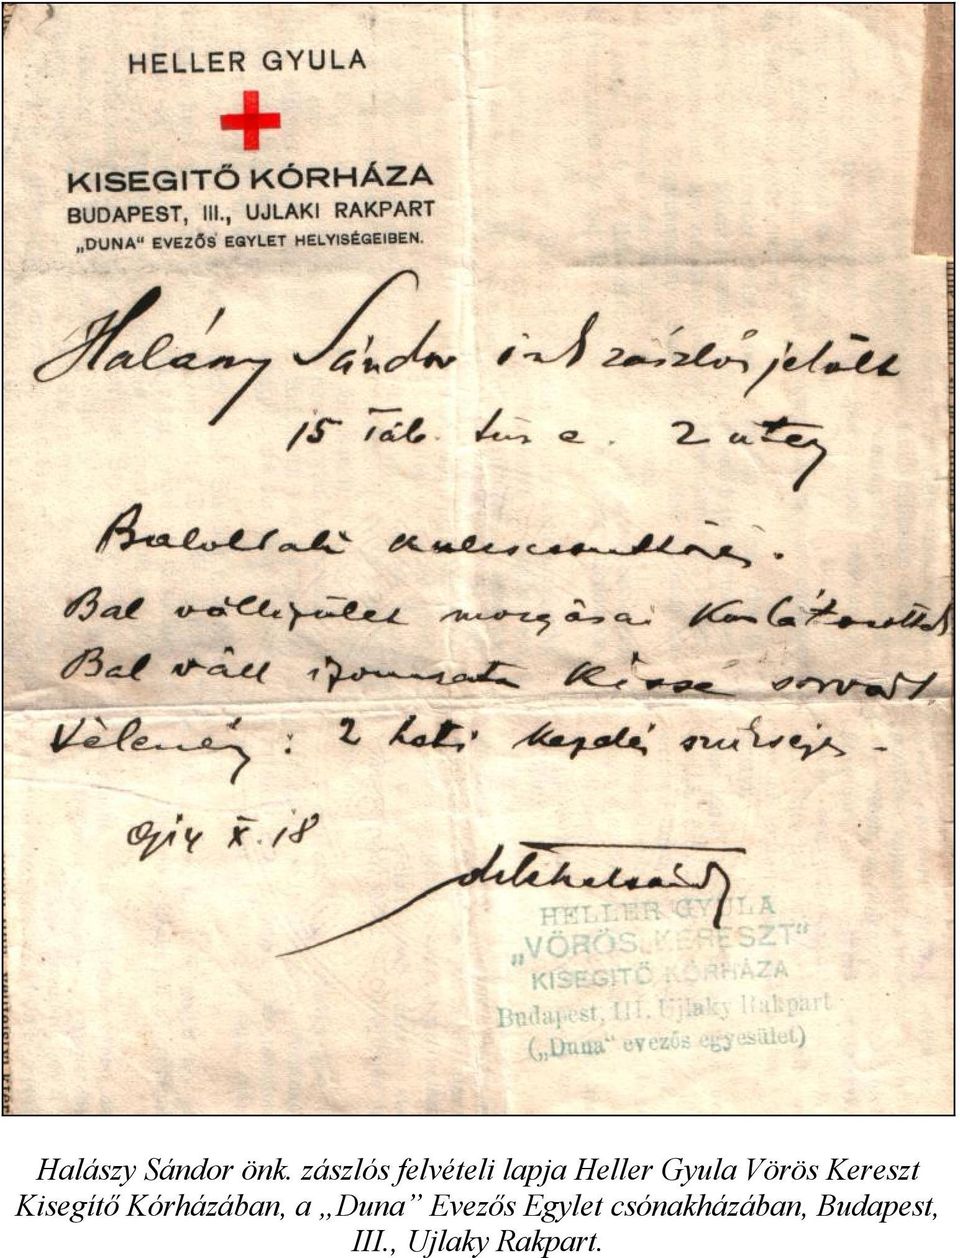 HELLER GYULA
KISEGITŐ KÓRHÁZA
BUDAPEST, III., UJLAKI RAKPART
„DUNA“ EVEZŐS EGYLET HELYISÉGEIBEN.
Halászy Sándor önk zászlós jelölt
15 Táb. tüz e. 2 üteg
Baloldali kulcscsonttörés.
Bal vállizület mozgásai korlátozottak
Bal váll izomzata kissé sorvadt.
Vélemény: 2 heti kezelés szükséges -
914 X. 18
HELLER GYULA
„VÖRÖS KERESZT“
KISEGITŐ KÓRHÁZA
Budapest, III. Ujlaky Rakpart
(„Duna“ evezős egyesület)
Halászy Sándor önk. zászlós felvételi lapja Heller Gyula Vörös Kereszt
Kisegítő Kórházában, a „Duna” Evezős Egylet csónakházában, Budapest,
III., Ujlaky Rakpart.